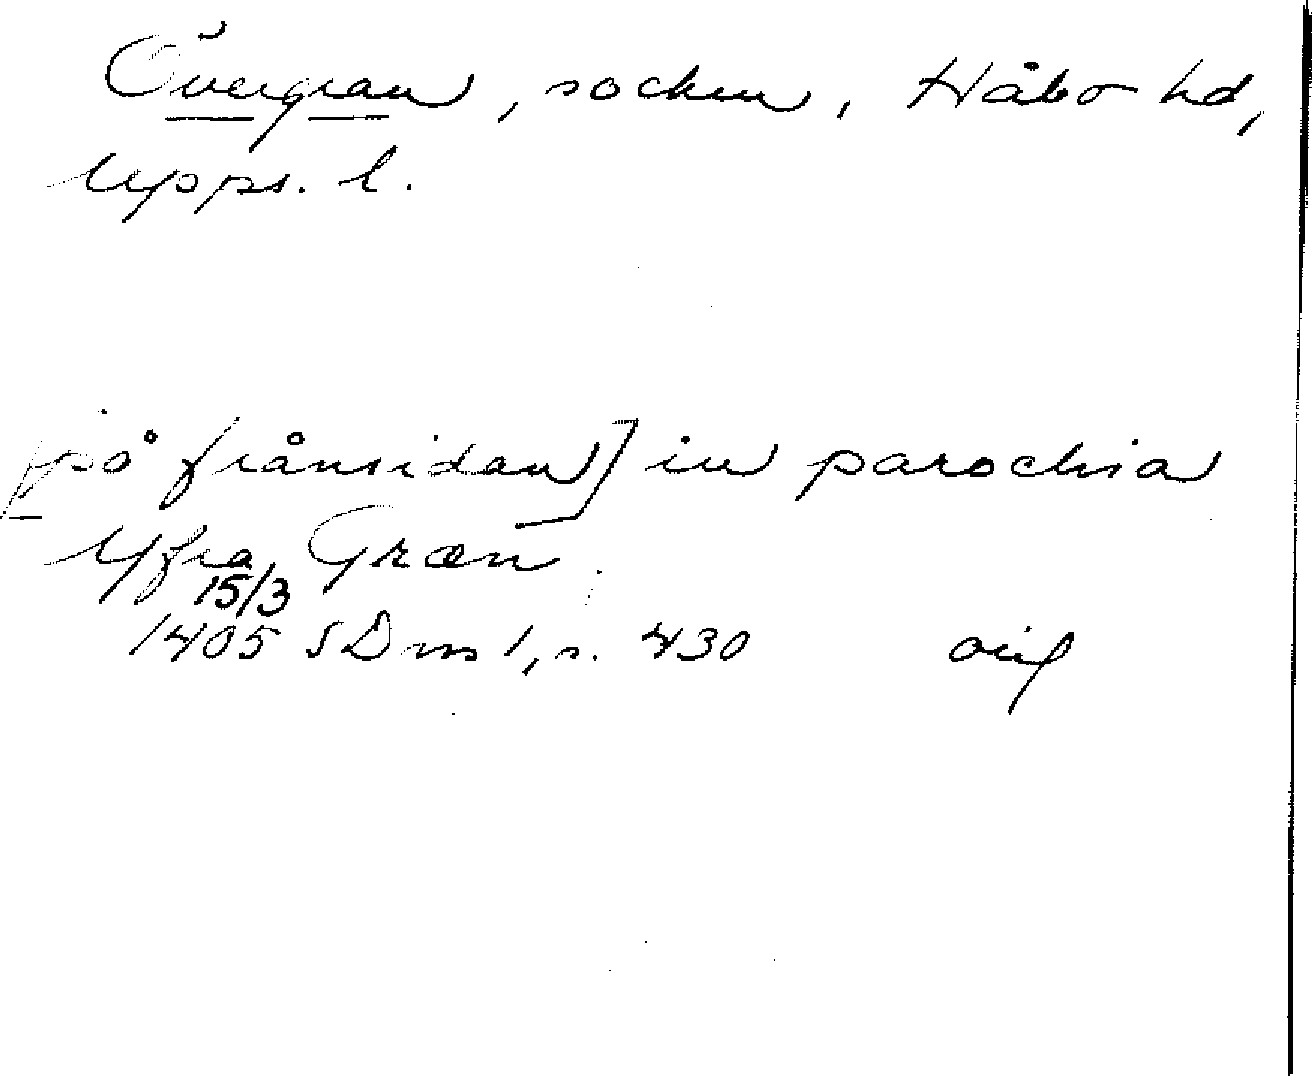 Övergran, socken, Håbo hd,
Upps. l.
[på frånsidan] in parochia
Yfra Græn
15/3
1405 SD ns 1, s. 430 orig